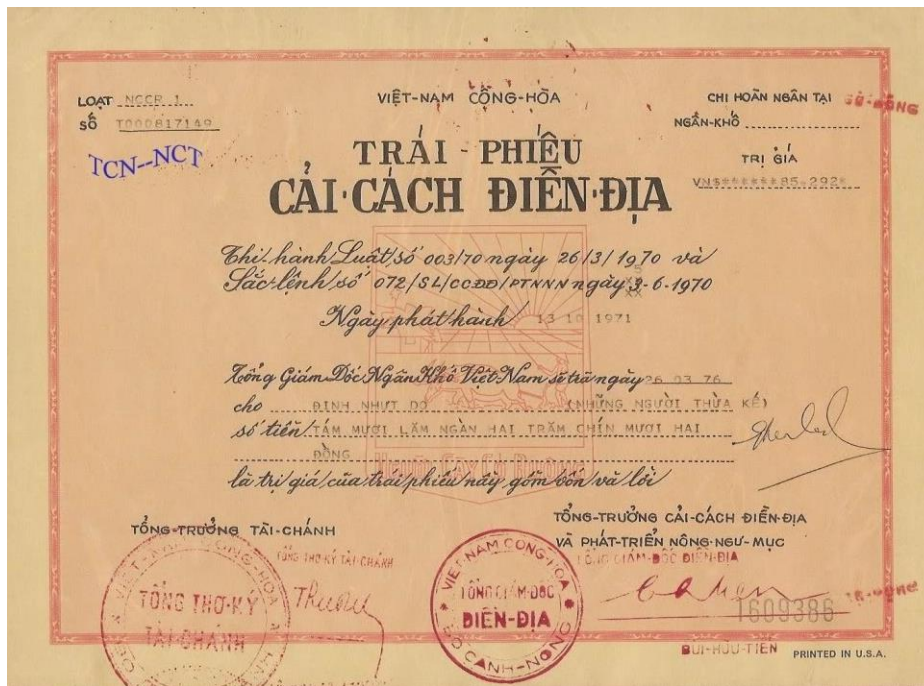 LOẠT NCCR 1
SỐ T000817149
TCN--NCT
VIỆT-NAM CỘNG-HÒA
CHI HOÃN NGÂN TẠI
NGÂN-KHỐ
TRỊ GIÁ
VN$******85.292*
TRÁI-PHIẾU
CẢI·CÁCH ĐIỀN·ĐỊA
Thi-hành Luật số 003/70 ngày 26/3/1970 và
Sắc-lệnh số 072/SL/CCĐĐ/PTNNN ngày 3-6-1970
Ngày phát hành 13 10 1971
Tổng Giám Đốc Ngân Khố Việt Nam sẽ trả ngày 26 03 76
cho ĐINH NHỰT DO (NHỮNG NGƯỜI THỪA KẾ)
số tiền TÁM MƯƠI LĂM NGÀN HAI TRĂM CHÍN MƯƠI HAI
ĐỒNG
Người Cày Có Ruộng
là trị giá của trái phiếu này gồm vốn và lời
TỔNG-TRƯỞNG TÀI-CHÁNH
TỔNG THƠ-KÝ TÀI-CHÁNH
TỔNG THƠ-KÝ
TÀI-CHÁNH
VIỆT-NAM CỘNG-HÒA
TỔNG GIÁM-ĐỐC
ĐIỀN-ĐỊA
BỘ CANH-NÔNG
TỔNG-TRƯỞNG CẢI-CÁCH ĐIỀN-ĐỊA
VÀ PHÁT-TRIỂN NÔNG-NGƯ-MỤC
TỔNG GIÁM-ĐỐC ĐIỀN-ĐỊA
1609386
BÙI-HỮU-TIẾN
PRINTED IN U.S.A.